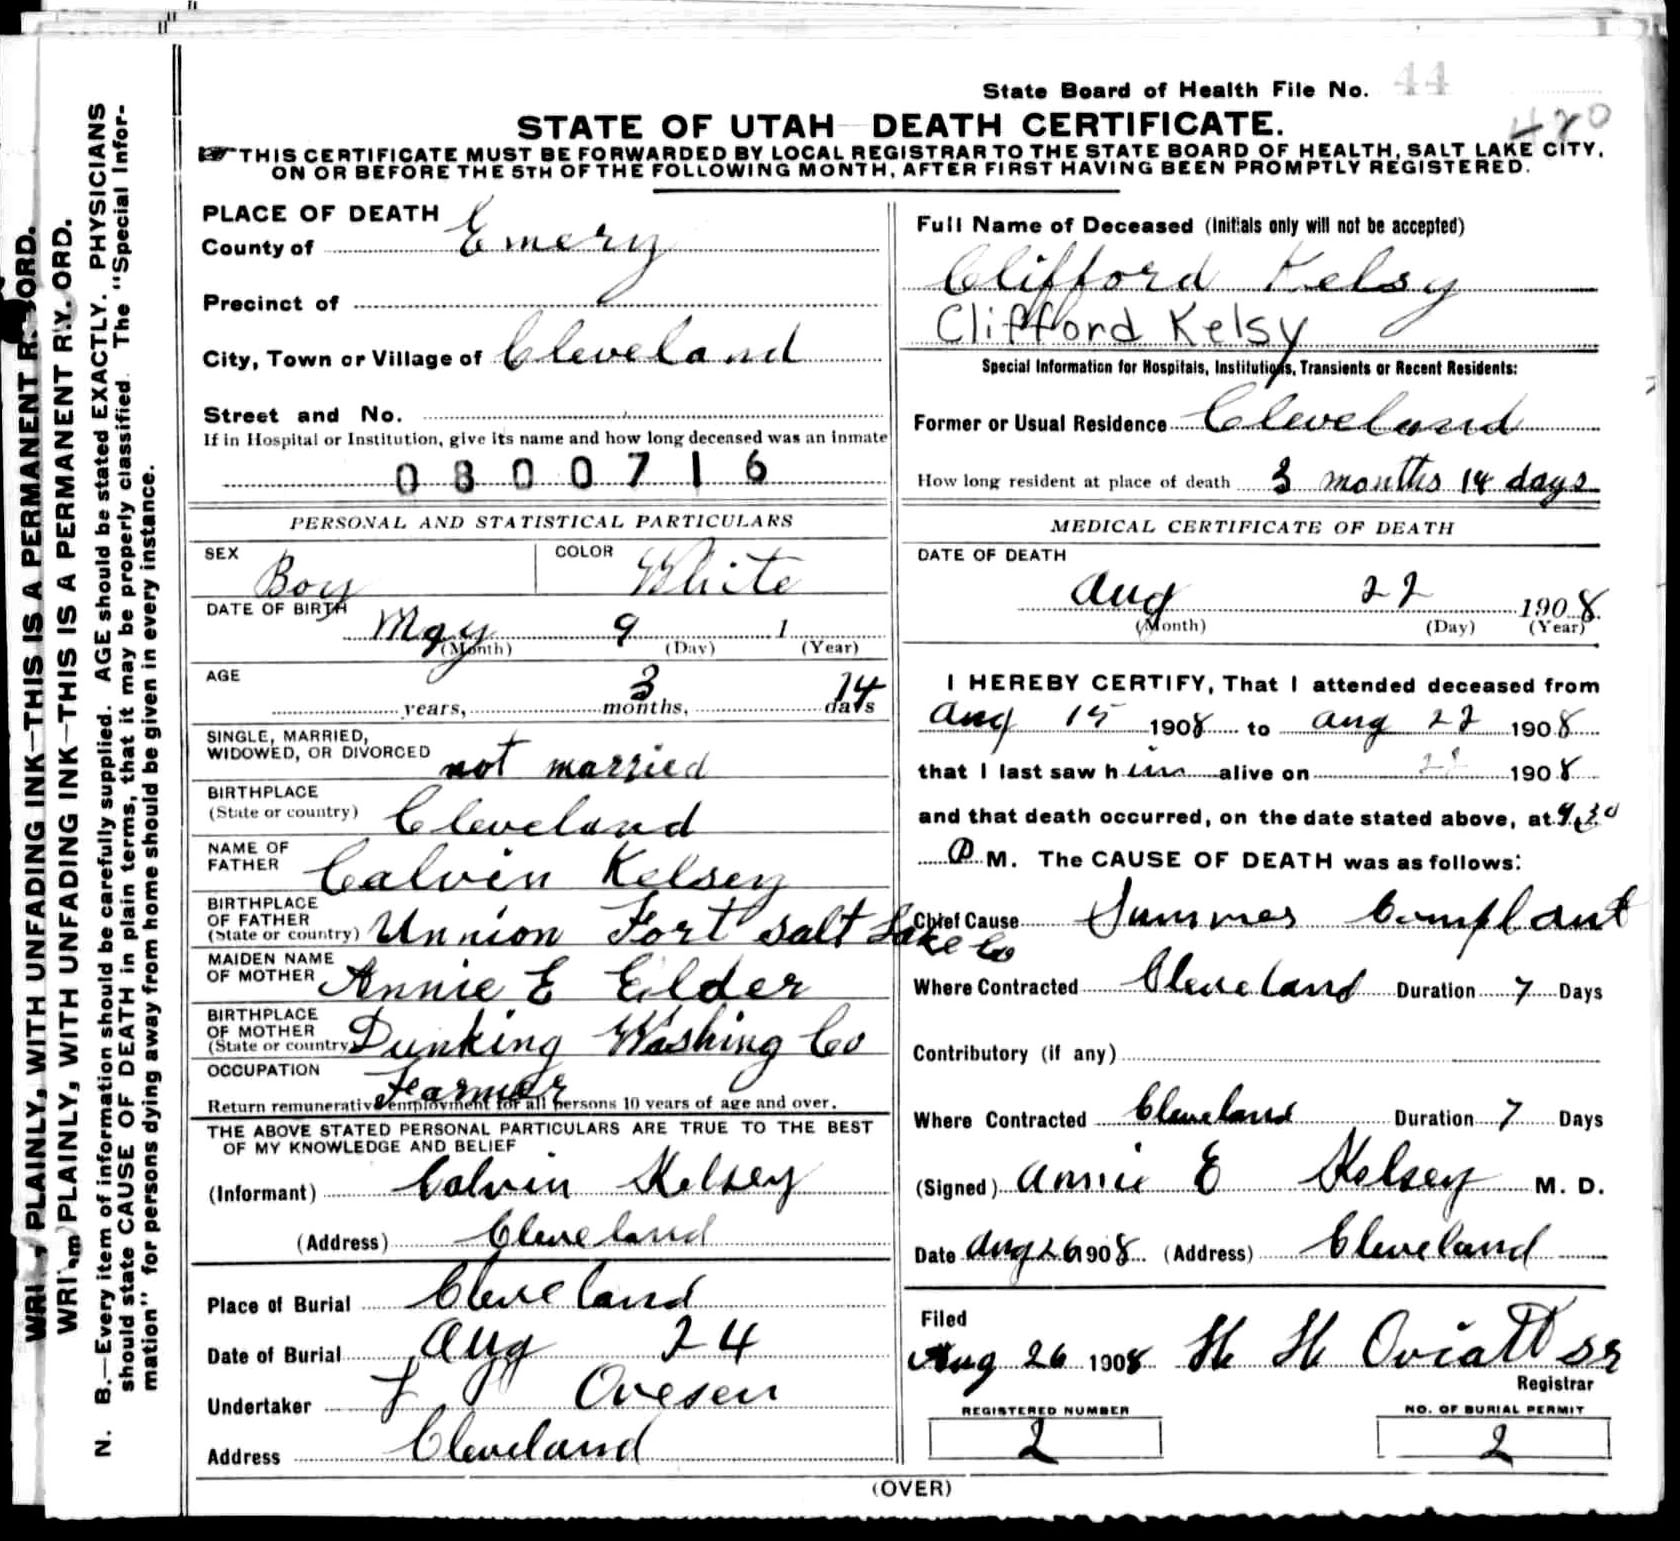 State Board of Health File No. 44
STATE OF UTAH DEATH CERTIFICATE.
THIS CERTIFICATE MUST BE FORWARDED BY LOCAL REGISTRAR TO THE STATE BOARD OF HEALTH, SALT LAKE CITY,
ON OR BEFORE THE 5TH OF THE FOLLOWING MONTH, AFTER FIRST HAVING BEEN PROMPTLY REGISTERED.
PLACE OF DEATH
County of Emery
Precinct of
City, Town or Village of Cleveland
Street and No.
If in Hospital or Institution, give its name and how long deceased was an inmate
0800716
PERSONAL AND STATISTICAL PARTICULARS
SEX Boy COLOR White
DATE OF BIRTH May 9 1
(Month) (Day) (Year)
AGE
years, 3 months, 14 days
SINGLE, MARRIED,
WIDOWED, OR DIVORCED not married
BIRTHPLACE
(State or country) Cleveland
NAME OF
FATHER Calvin Kelsey
BIRTHPLACE
OF FATHER
(State or country) Unnion Fort Salt Lake Co
MAIDEN NAME
OF MOTHER Annie E Eilder
BIRTHPLACE
OF MOTHER
(State or country) Dunking Washing Co
OCCUPATION Farmer
Return remunerative employment for all persons 10 years of age and over.
THE ABOVE STATED PERSONAL PARTICULARS ARE TRUE TO THE BEST
OF MY KNOWLEDGE AND BELIEF
(Informant) Calvin Kelsey
(Address) Cleveland
Place of Burial Cleveland
Date of Burial Aug 24
Undertaker Ovesen
Address Cleveland
Full Name of Deceased (Initials only will not be accepted)
Clifford Kelsy
Clifford Kelsy
Special Information for Hospitals, Institutions, Transients or Recent Residents:
Former or Usual Residence Cleveland
How long resident at place of death 3 months 14 days
MEDICAL CERTIFICATE OF DEATH
DATE OF DEATH
Aug 22 1908
(Month) (Day) (Year)
I HEREBY CERTIFY, That I attended deceased from
Aug 15 1908 to Aug 22 1908
that I last saw him alive on 22 1908
and that death occurred, on the date stated above, at 9.30
P M. The CAUSE OF DEATH was as follows:
Chief Cause Summer Complant
Where Contracted Cleveland Duration 7 Days
Contributory (if any)
Where Contracted Cleveland Duration 7 Days
(Signed) Annie E Kelsey M. D.
Date Aug 26 1908 (Address) Cleveland
Filed
Aug 26 1908 H H Oviatt Sr
Registrar
REGISTERED NUMBER
2
NO. OF BURIAL PERMIT
2
(OVER)
WRI PLAINLY, WITH UNFADING INK—THIS IS A PERMANENT R ORD.
WRI PLAINLY, WITH UNFADING INK—THIS IS A PERMANENT R ORD.
N. B.—Every item of information should be carefully supplied. AGE should be stated EXACTLY. PHYSICIANS
should state CAUSE OF DEATH in plain terms, that it may be properly classified. The "Special Infor-
mation" for persons dying away from home should be given in every instance.